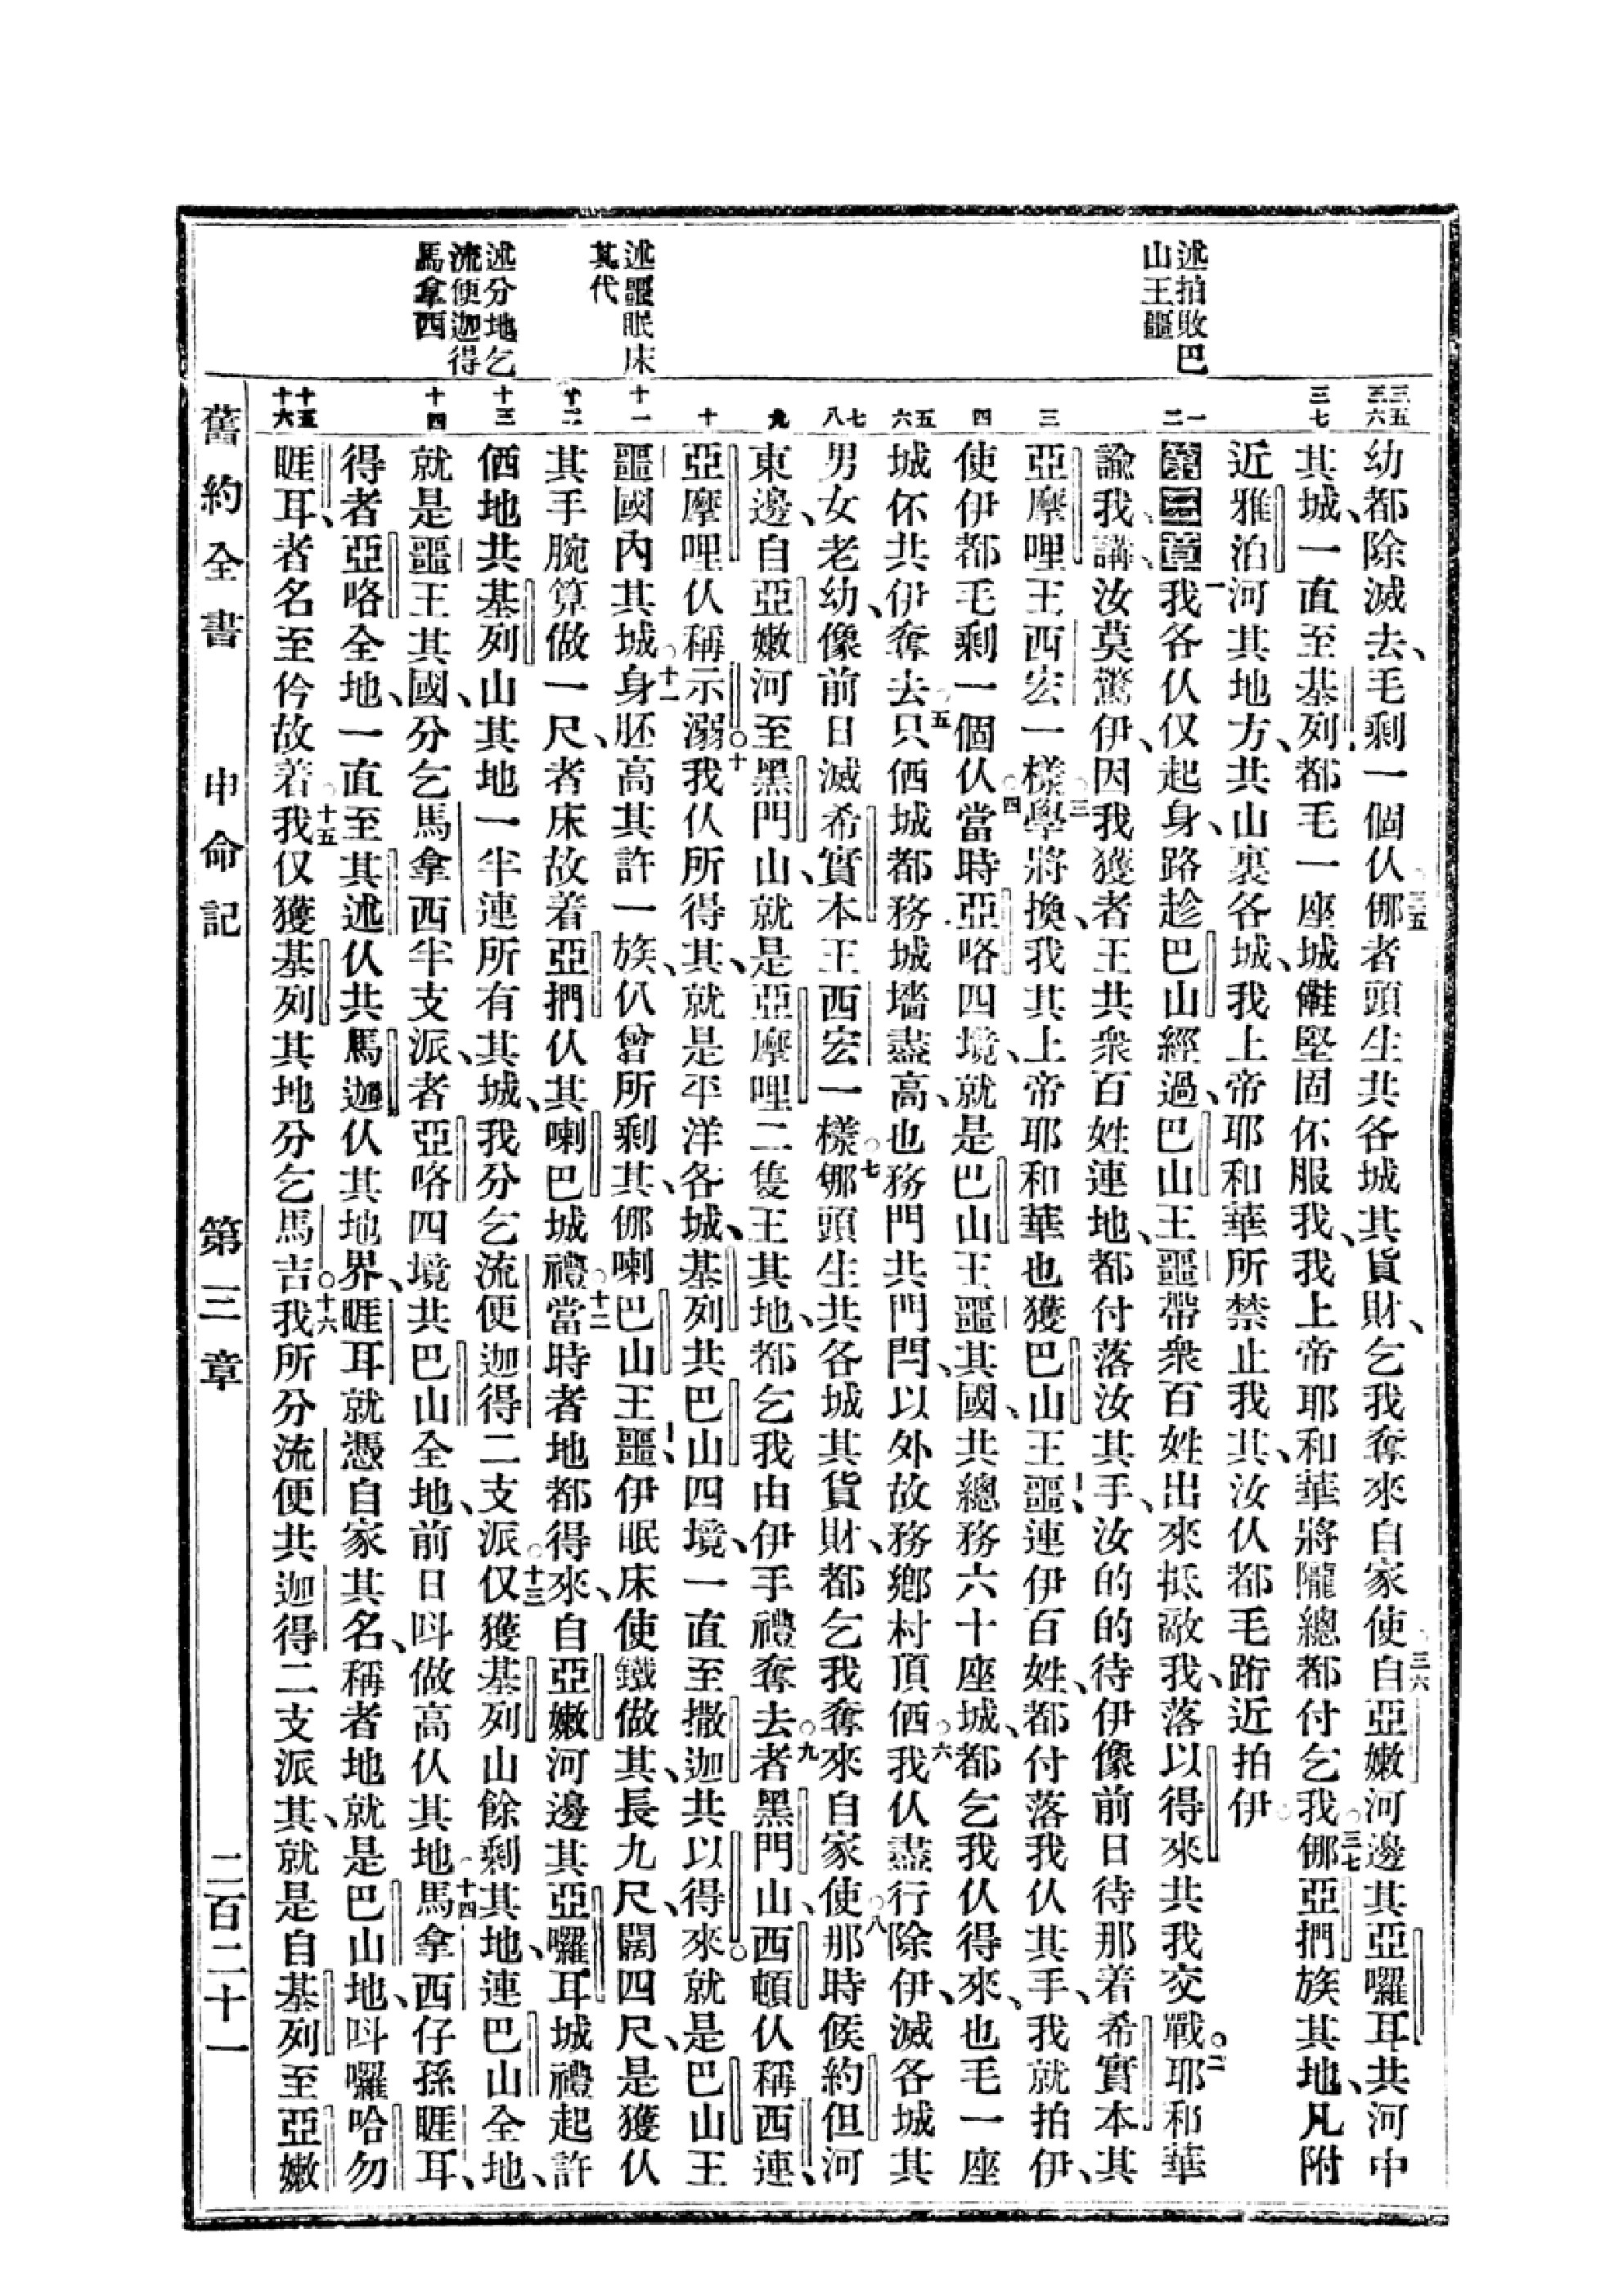 述拍敗巴
山王噩
述噩眠床
其代
述分地乞
流便迦得
馬拿西
三五
三六
三七
一
二
三
四
五
六
七
八
九
十
十一
十二
十三
十四
十五
十六
幼都除滅去、毛剩一個仈。三五㑚者頭生共各城其貨財、乞我奪來自家使。三六自亞嫩河邊其亞囉耳、共河中
其城、一直至基列、都毛一座城㒕堅固伓服我、我上帝耶和華將隴總都付乞我。三七㑚亞捫族其地、凡附
近雅泊河其地方、共山裏各城、我上帝耶和華所禁止我其、汝仈都毛跡近拍伊。
第三章 一我各仈仅起身、路趁巴山經過、巴山王噩帶衆百姓出來抵敵我、落以得來共我交戰。二耶和華
諭我講、汝莫驚伊、因我獲者王共衆百姓連地、都付落汝其手、汝的的待伊像前日待那着希實本其
亞摩哩王西宏一樣。三學將換、我其上帝耶和華也獲巴山王噩、連伊百姓、都付落我仈其手、我就拍伊、
使伊都毛剩一個仈。四當時亞咯四境、就是巴山王噩其國、共總務六十座城、都乞我仈得來、也毛一座
城伓共伊奪去。五只㐁城都務城墻盡高、也務門共門閂、以外故務鄉村頂㐁。六我仈盡行除伊、滅各城其
男女老幼、像前日滅希實本王西宏一樣。七㑚頭生共各城其貨財、都乞我奪來自家使。八那時候約但河
東邊、自亞嫩河至黑門山、就是亞摩哩二隻王其地、都乞我由伊手禮奪去。九者黑門山、西頓仈稱西連、
亞摩哩仈稱示溺。十我仈所得其、就是平洋各城、基列共巴山四境、一直至撒迦共以得來、就是巴山王
噩國內其城。十一身胚高其許一族、仈曾所剩其、㑚喇巴山王噩、伊眠床使鐵做其、長九尺、闊四尺、是獲仈
其手腕算做一尺、者床故着亞捫仈其喇巴城禮。十二當時者地都得來、自亞嫩河邊其亞囉耳城禮起、許
㐁地共基列山其地一半、連所有其城、我分乞流便迦得二支派。十三仅獲基列山餘剩其地、連巴山全地、
就是噩王其國、分乞馬拿西半支派、者亞咯四境共巴山全地、前日呌做高仈其地。十四馬拿西仔孫睚耳、
得者亞咯全地、一直至其述仈共馬迦仈其地界、睚耳就憑自家其名、稱者地就是巴山地、呌囉哈勿
睚耳、者名至仱故着。十五我仅獲基列其地分乞馬吉。十六我所分流便共迦得二支派其、就是自基列至亞嫩
舊約全書 申命記 第三章 二百二十一